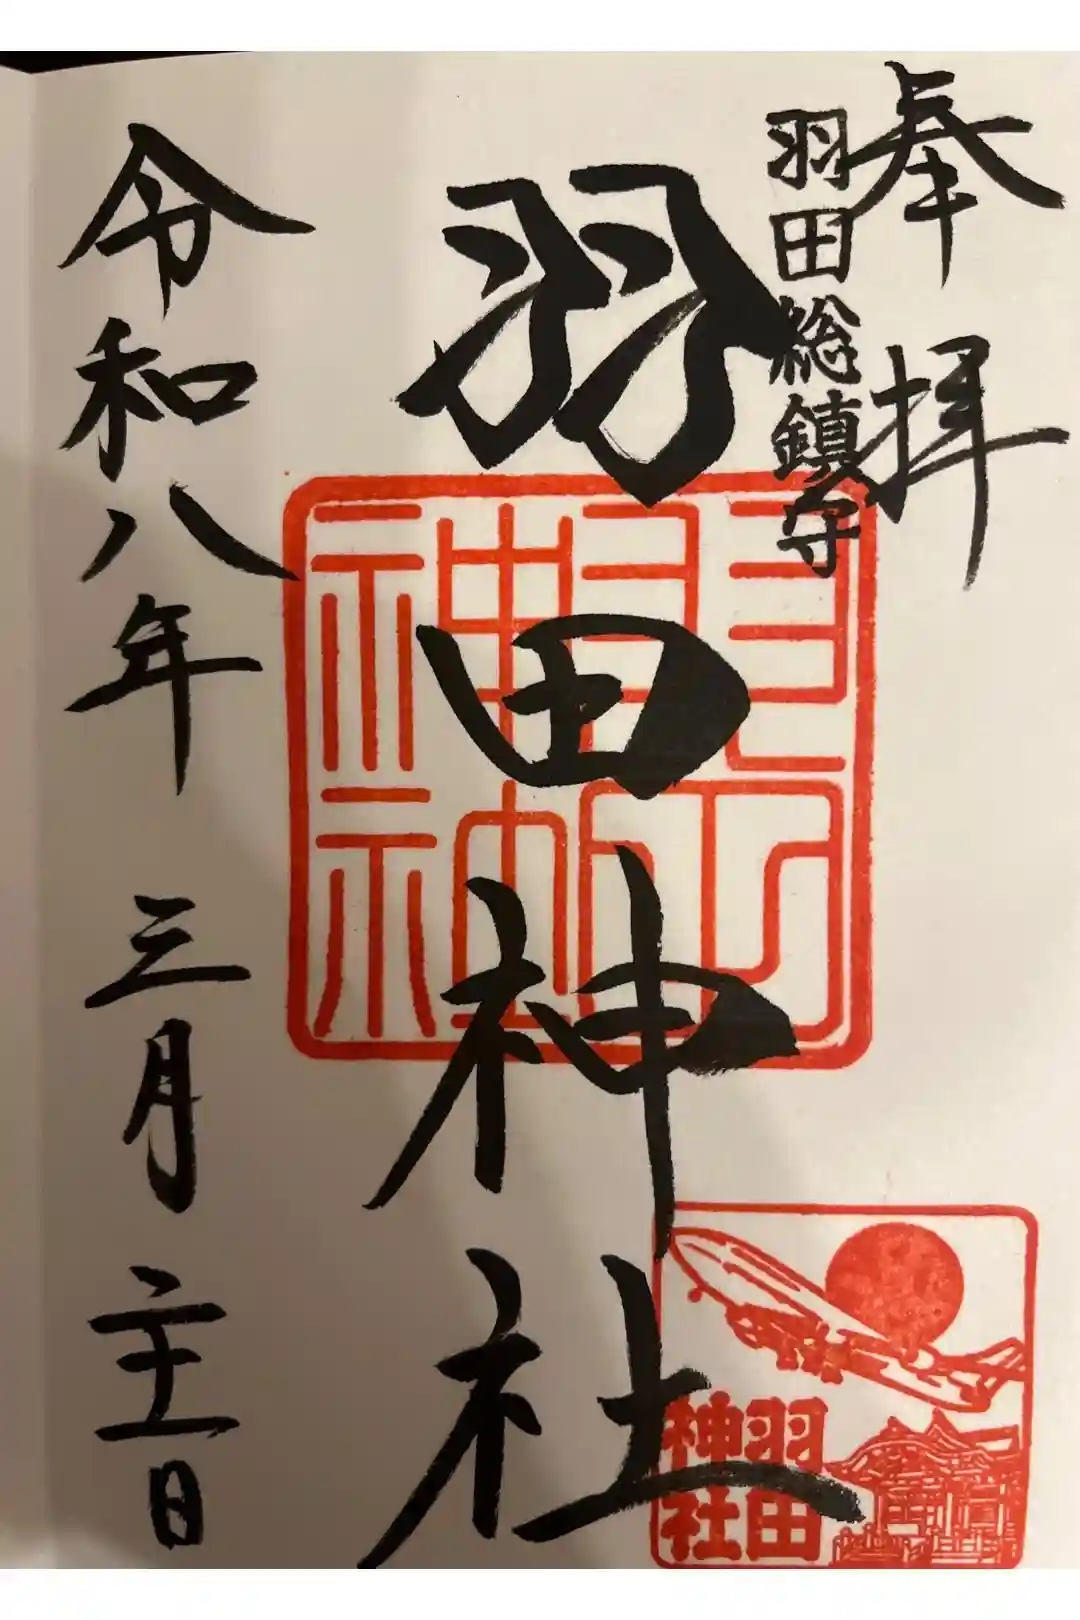 奉拝
羽田総鎮守
羽田神社
令和八年 三月 二十一日
羽田
神社